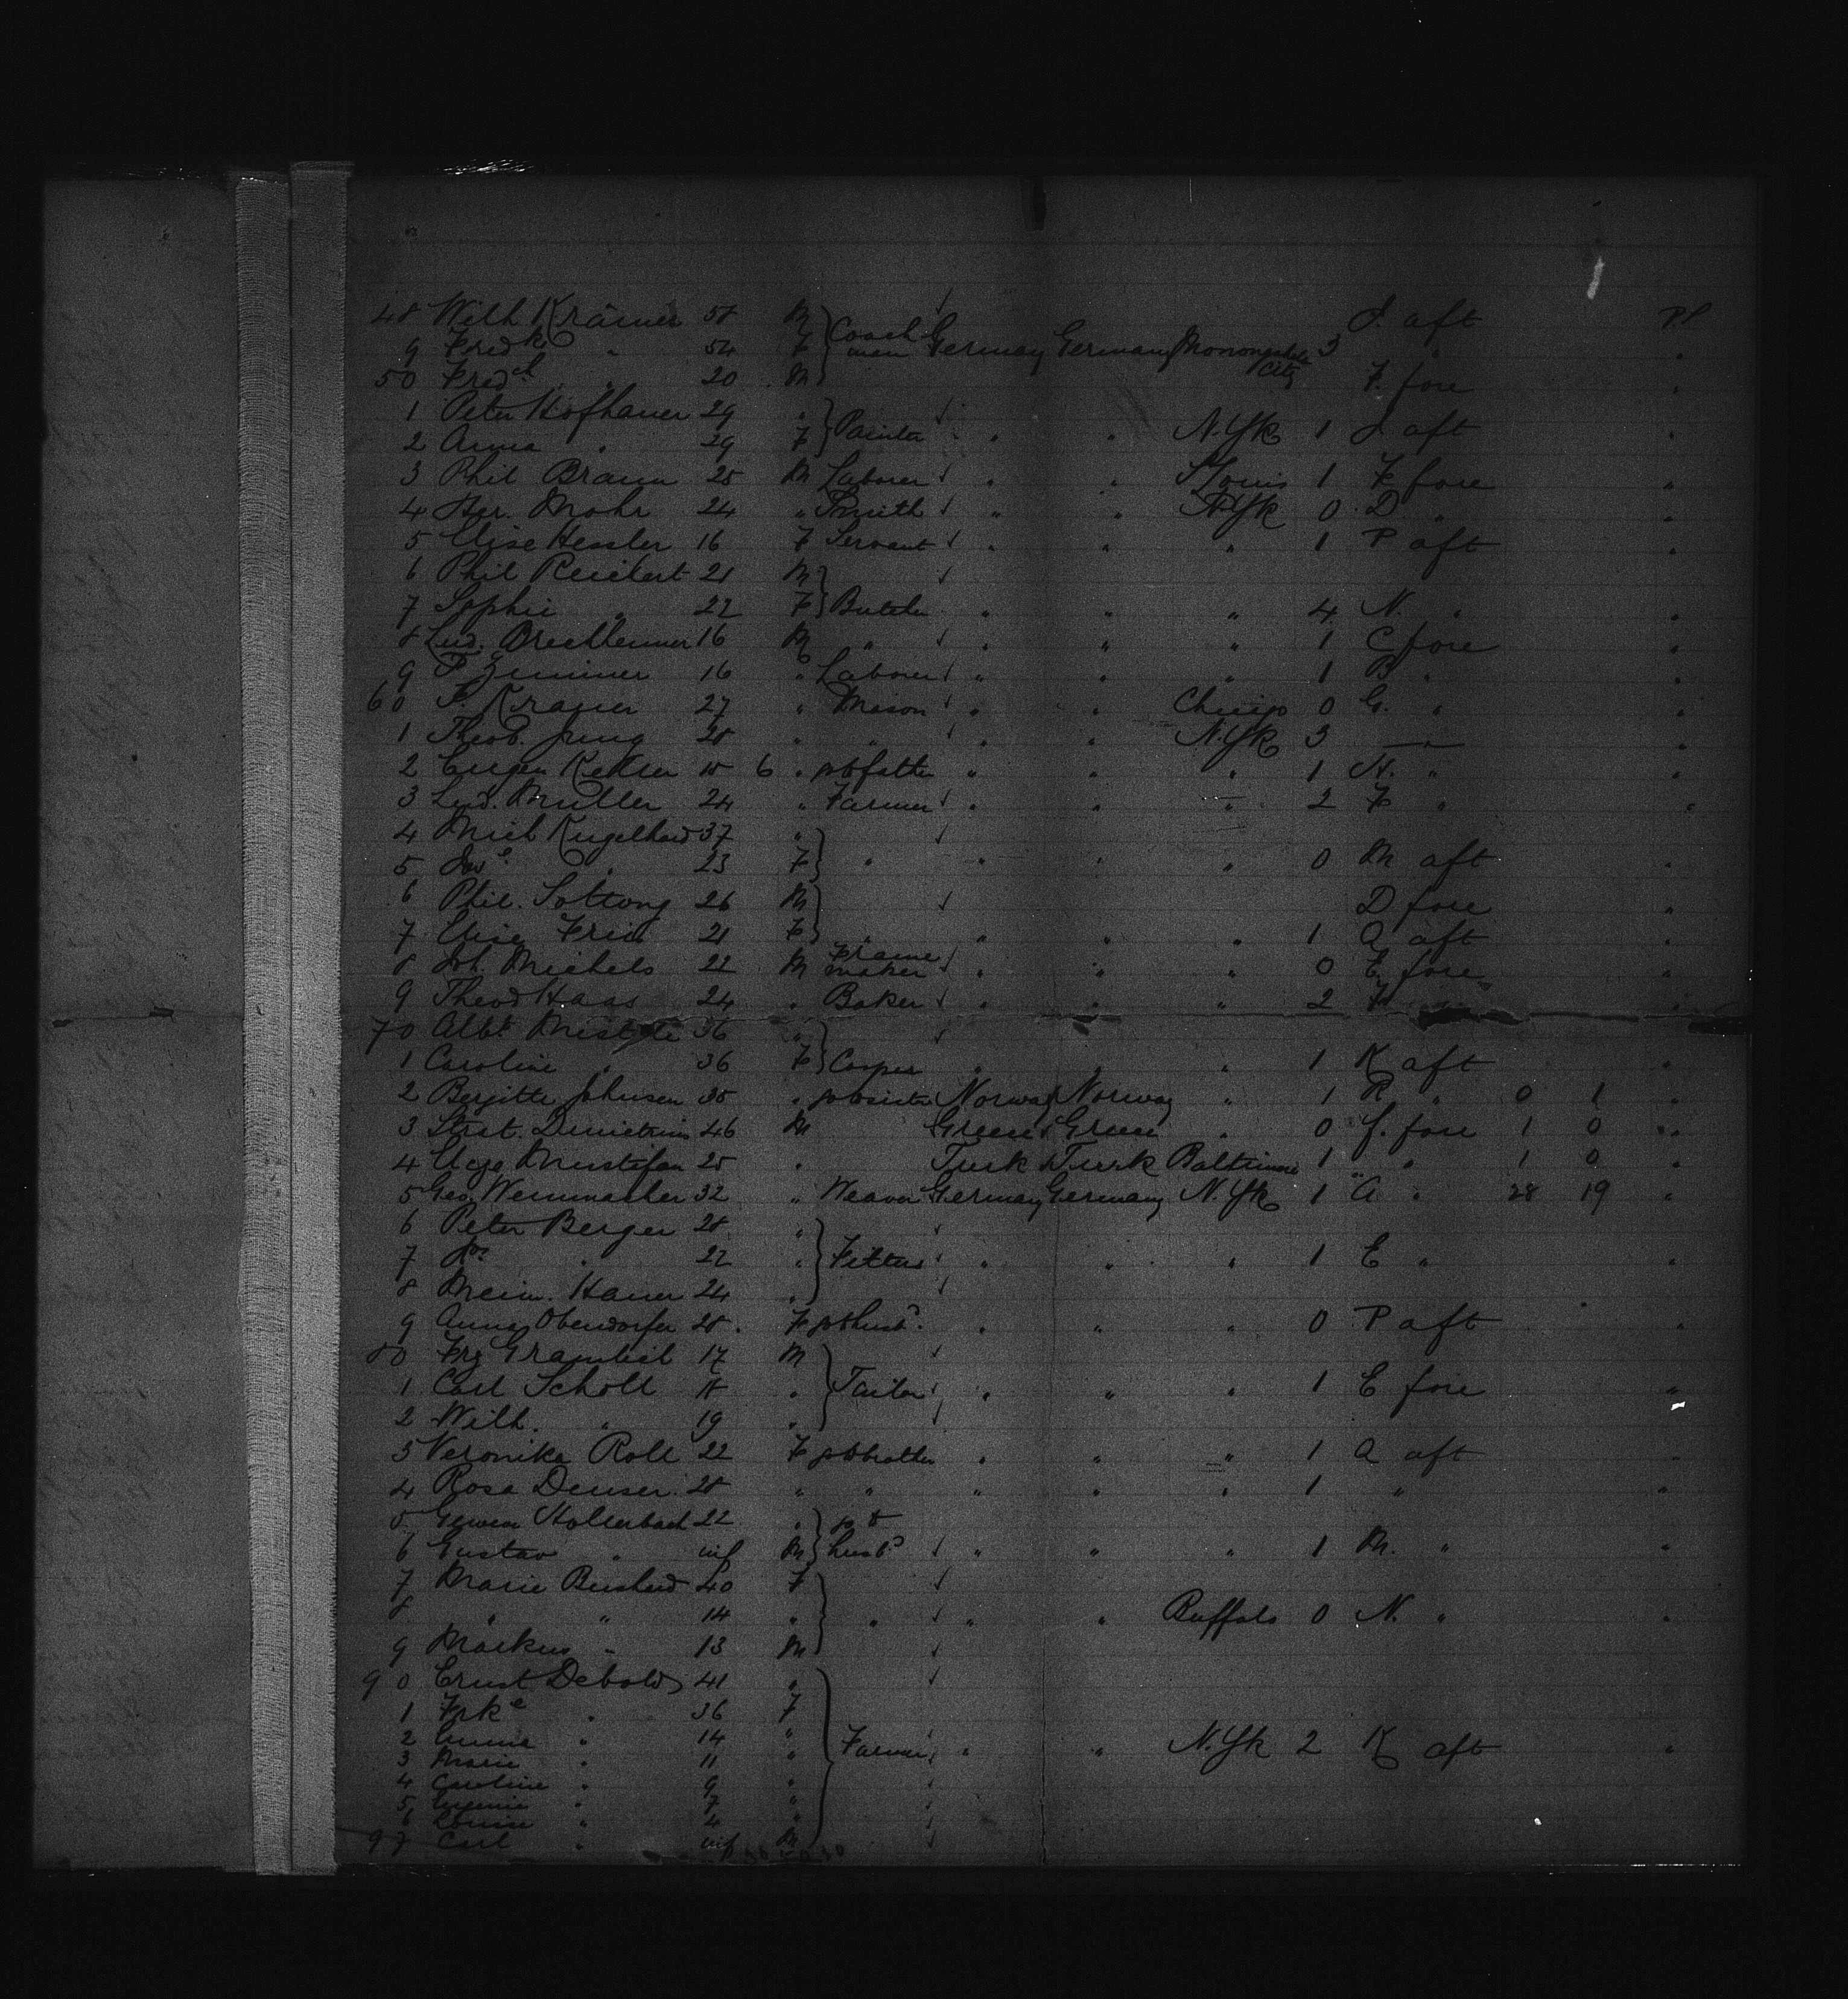 48 Wilh Krämer 58 M J. aft PP
9 Fredk " 54 F Coach man Germany Germany Monongahela City 3 " "
50 Fredch " 20 M F. fore "
1 Peter Hofbauer 29 "
2 Anna " 29 F Painter " " N.Yk 1 J aft "
3 Phil Braun 25 M Laborer " " St Louis 1 F fore "
4 Her. Mohr 24 " Smith " " N.Yk 0 D " "
5 Elise Hessler 16 F Servant " " " 1 P aft "
6 Phil Reichert 21 M
7 Sophie " 22 F Butcher " " " 4 N. " "
8 Lud. 16 M " " " " 1 C fore "
9 P Zimmer 16 " Laborer " " " 1 B " "
60 Kraner 27 " Mason " " Chicgo 0 G. " "
1 Theob. Jung 28 " " " " N.Yk 3 — " "
2 Eugen Keller 6 " " " " 1 N. " "
3 Lud. Müller 24 " Farmer " " " 2 F " "
4 Mich 37 "
5 " 23 F " " " " 0 M aft "
6 Phil. Sottong 26 M D fore "
7 Elise Frié 21 F " " " " 1 A aft "
8 Joh. Michels 22 M Frame maker " " " 0 E fore "
9 Theod Haas 24 " Baker " " " 2 F "
70 Albt 36 "
1 Caroline " 36 F Cooper " " " 1 K aft "
2 Bergitte Johnsen 35 " to sister Norway Norway " 1 R " 0 1 "
3 Strat. Dimetrius 46 M Greece Greece " 0 J. fore 1 0 "
4 Mustafan 25 " Turk Turk Baltimore 1 " 1 0 "
5 Geo Wennmacher 32 " Weaver Germany Germany N.Yk 1 A " 28 19 "
6 Peter Berger 28 "
7 " 22 " Fitters " " " 1 E " "
8 Hauer 24 "
9 Anna Obendorfer 28 F to husbd " " " 0 P aft "
80 Frz 17 M
1 Carl Scholl 18 " Tailor " " " 1 E fore "
2 Wilh. " 19 "
3 Veronika Roll 22 F to brother " " " 1 A aft "
4 Rosa Denser 28 " " " " " 1 " "
5 Hollerbach 22 " to
6 Gustav " inf M husbd " " " 1 M. " "
7 Marie 40 F
8 " " 14 " " " " Buffalo 0 N. " "
9 Markus " 13 M
90 Ernst Debold 41 "
1 Frke " 36 F
2 Emma " 14 "
3 Marie " 11 " Farmer " " N.Yk 2 K aft "
4 Caroline " 9 "
5 Eugenie " 7 "
6 Louise " 4 "
97 Carl " inf M